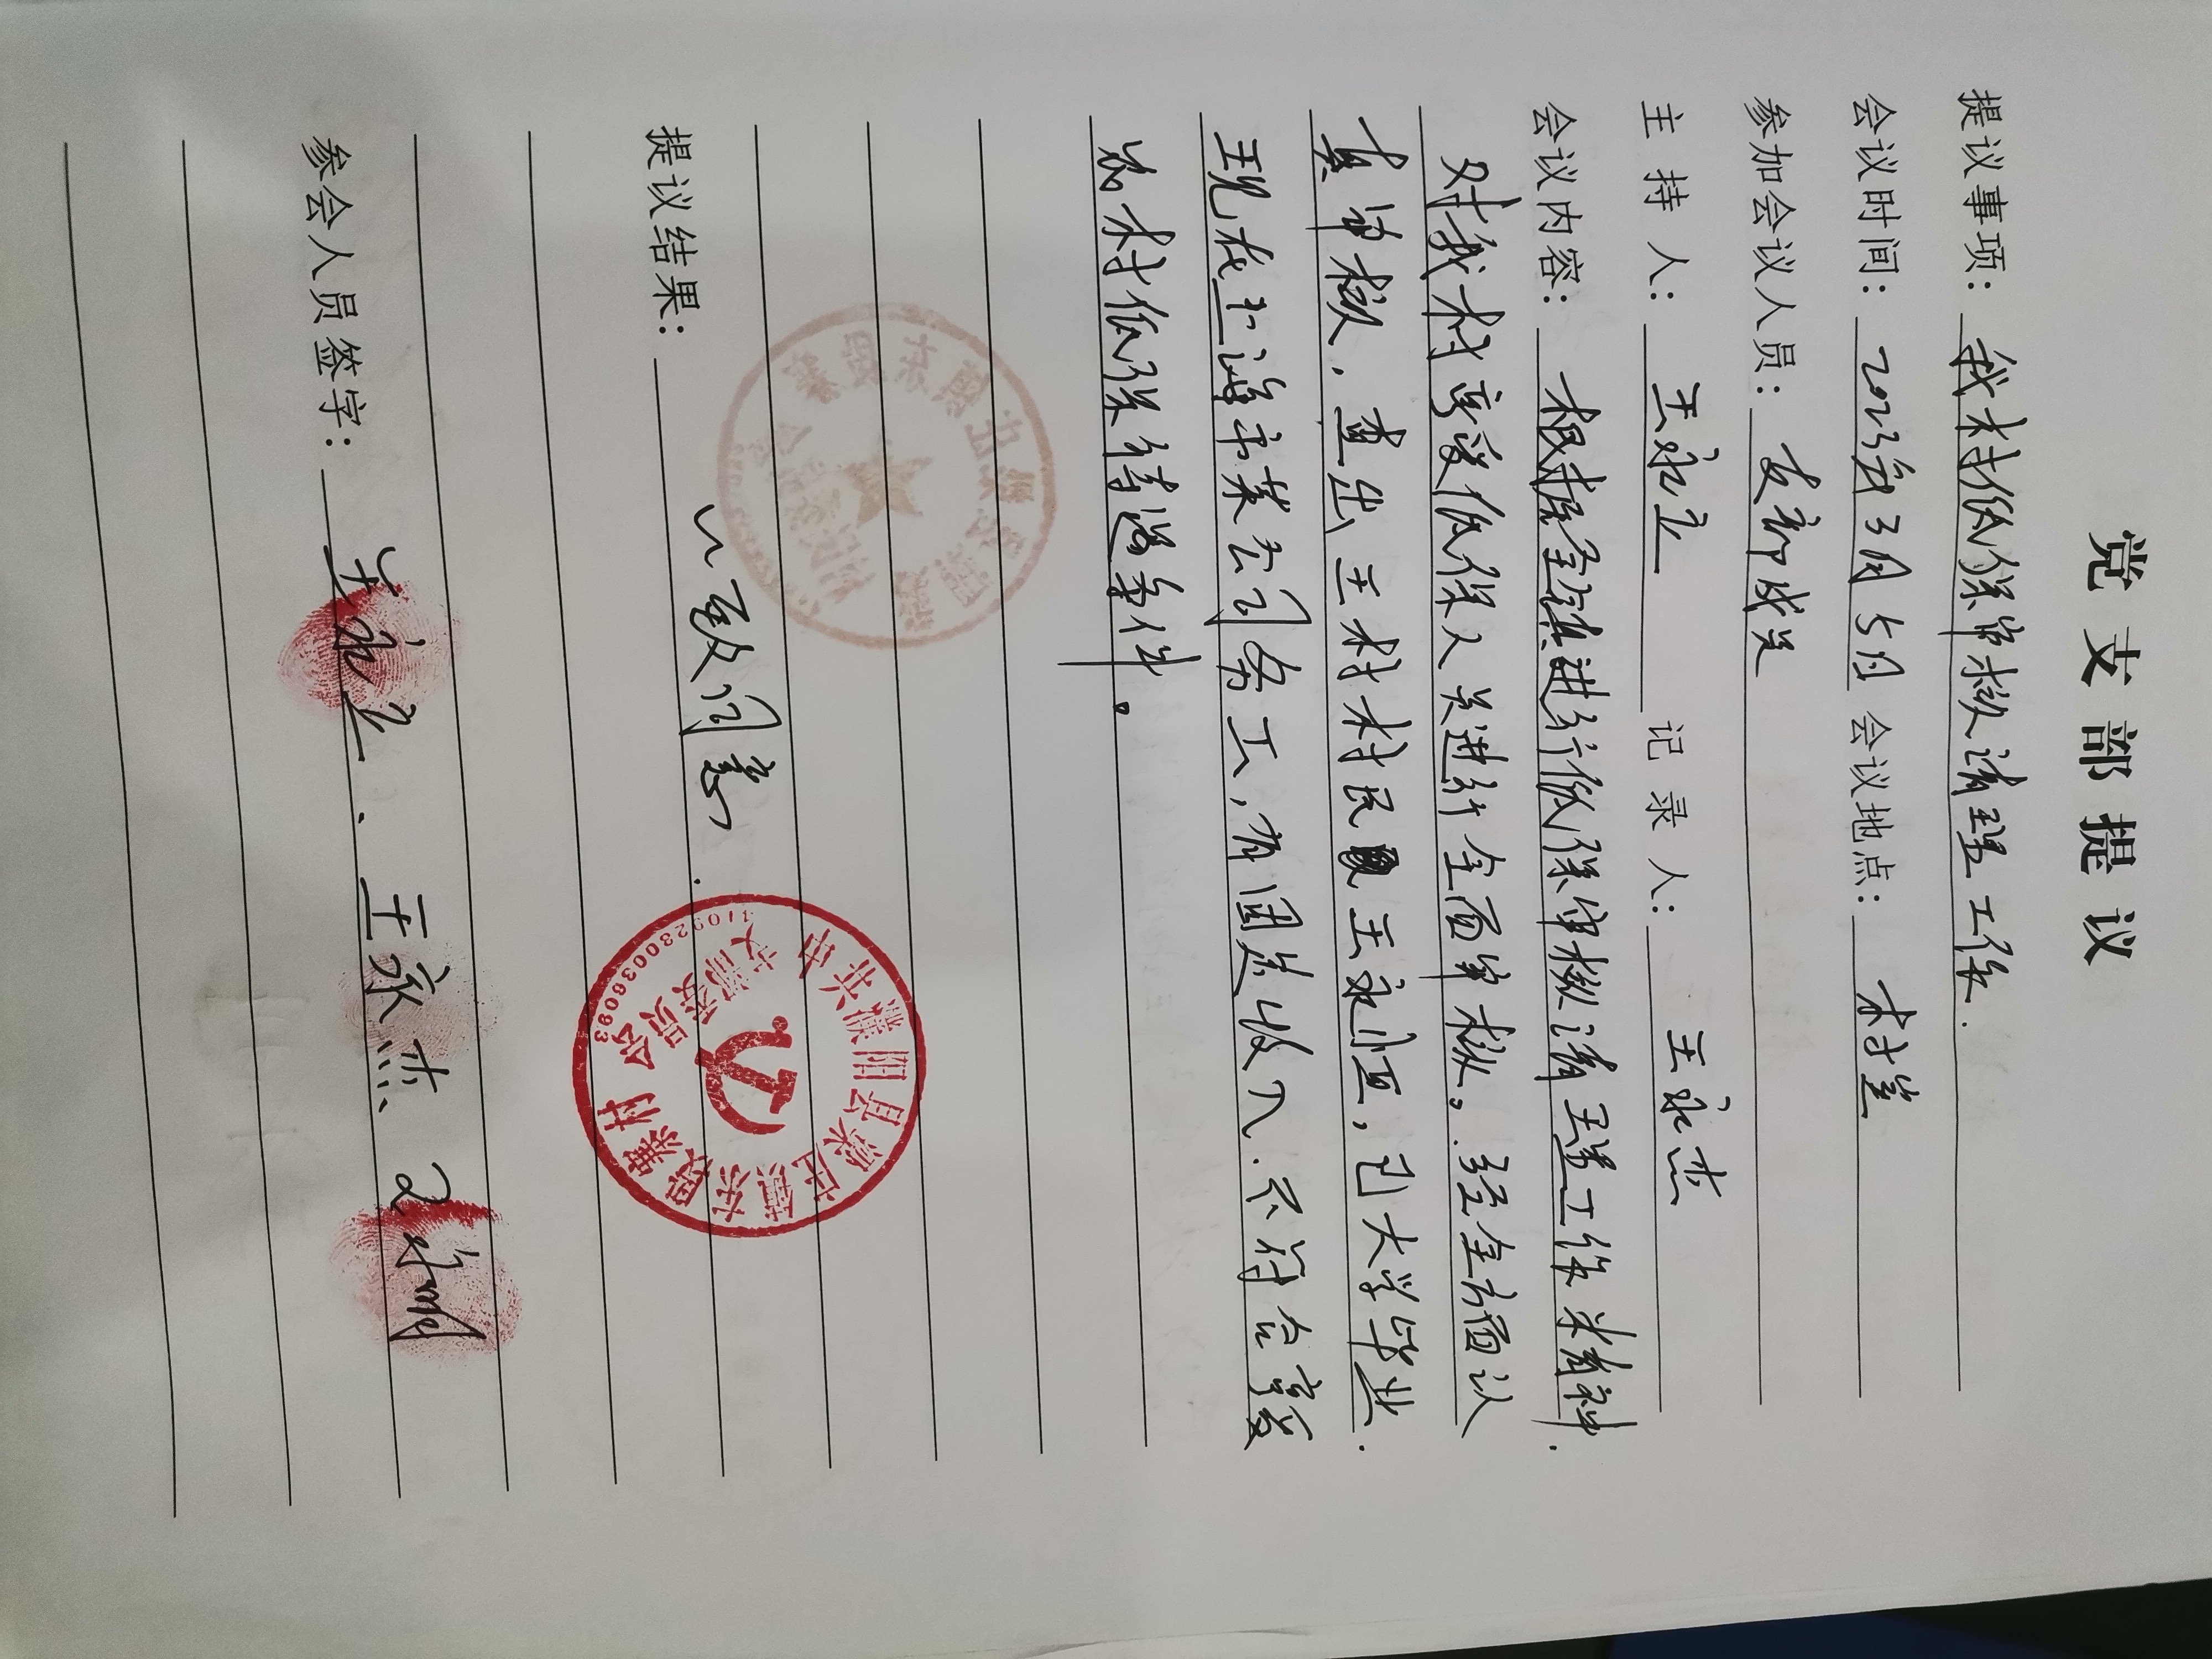 党支部提议
提议事项: 我村低保审核清理工作.
会议时间: 2023年3月5日 会议地点: 村室
参加会议人员: 支部成员
主持人: 王永立 记录人: 王永杰
会议内容: 根据全镇进行低保审核清理工作精神.
对我村享受低保人员进行全面审核。经全方面认
真审核, 查出王村村民 王永恒, 已大学毕业.
现在上海市某公司务工, 有固定收入. 不符合享受
农村低保待遇条件。
中共濮阳县梁庄镇东段寨村
支部委员会
提议结果: 一致同意.
参会人员签字: 王永立. 王永杰 王永明